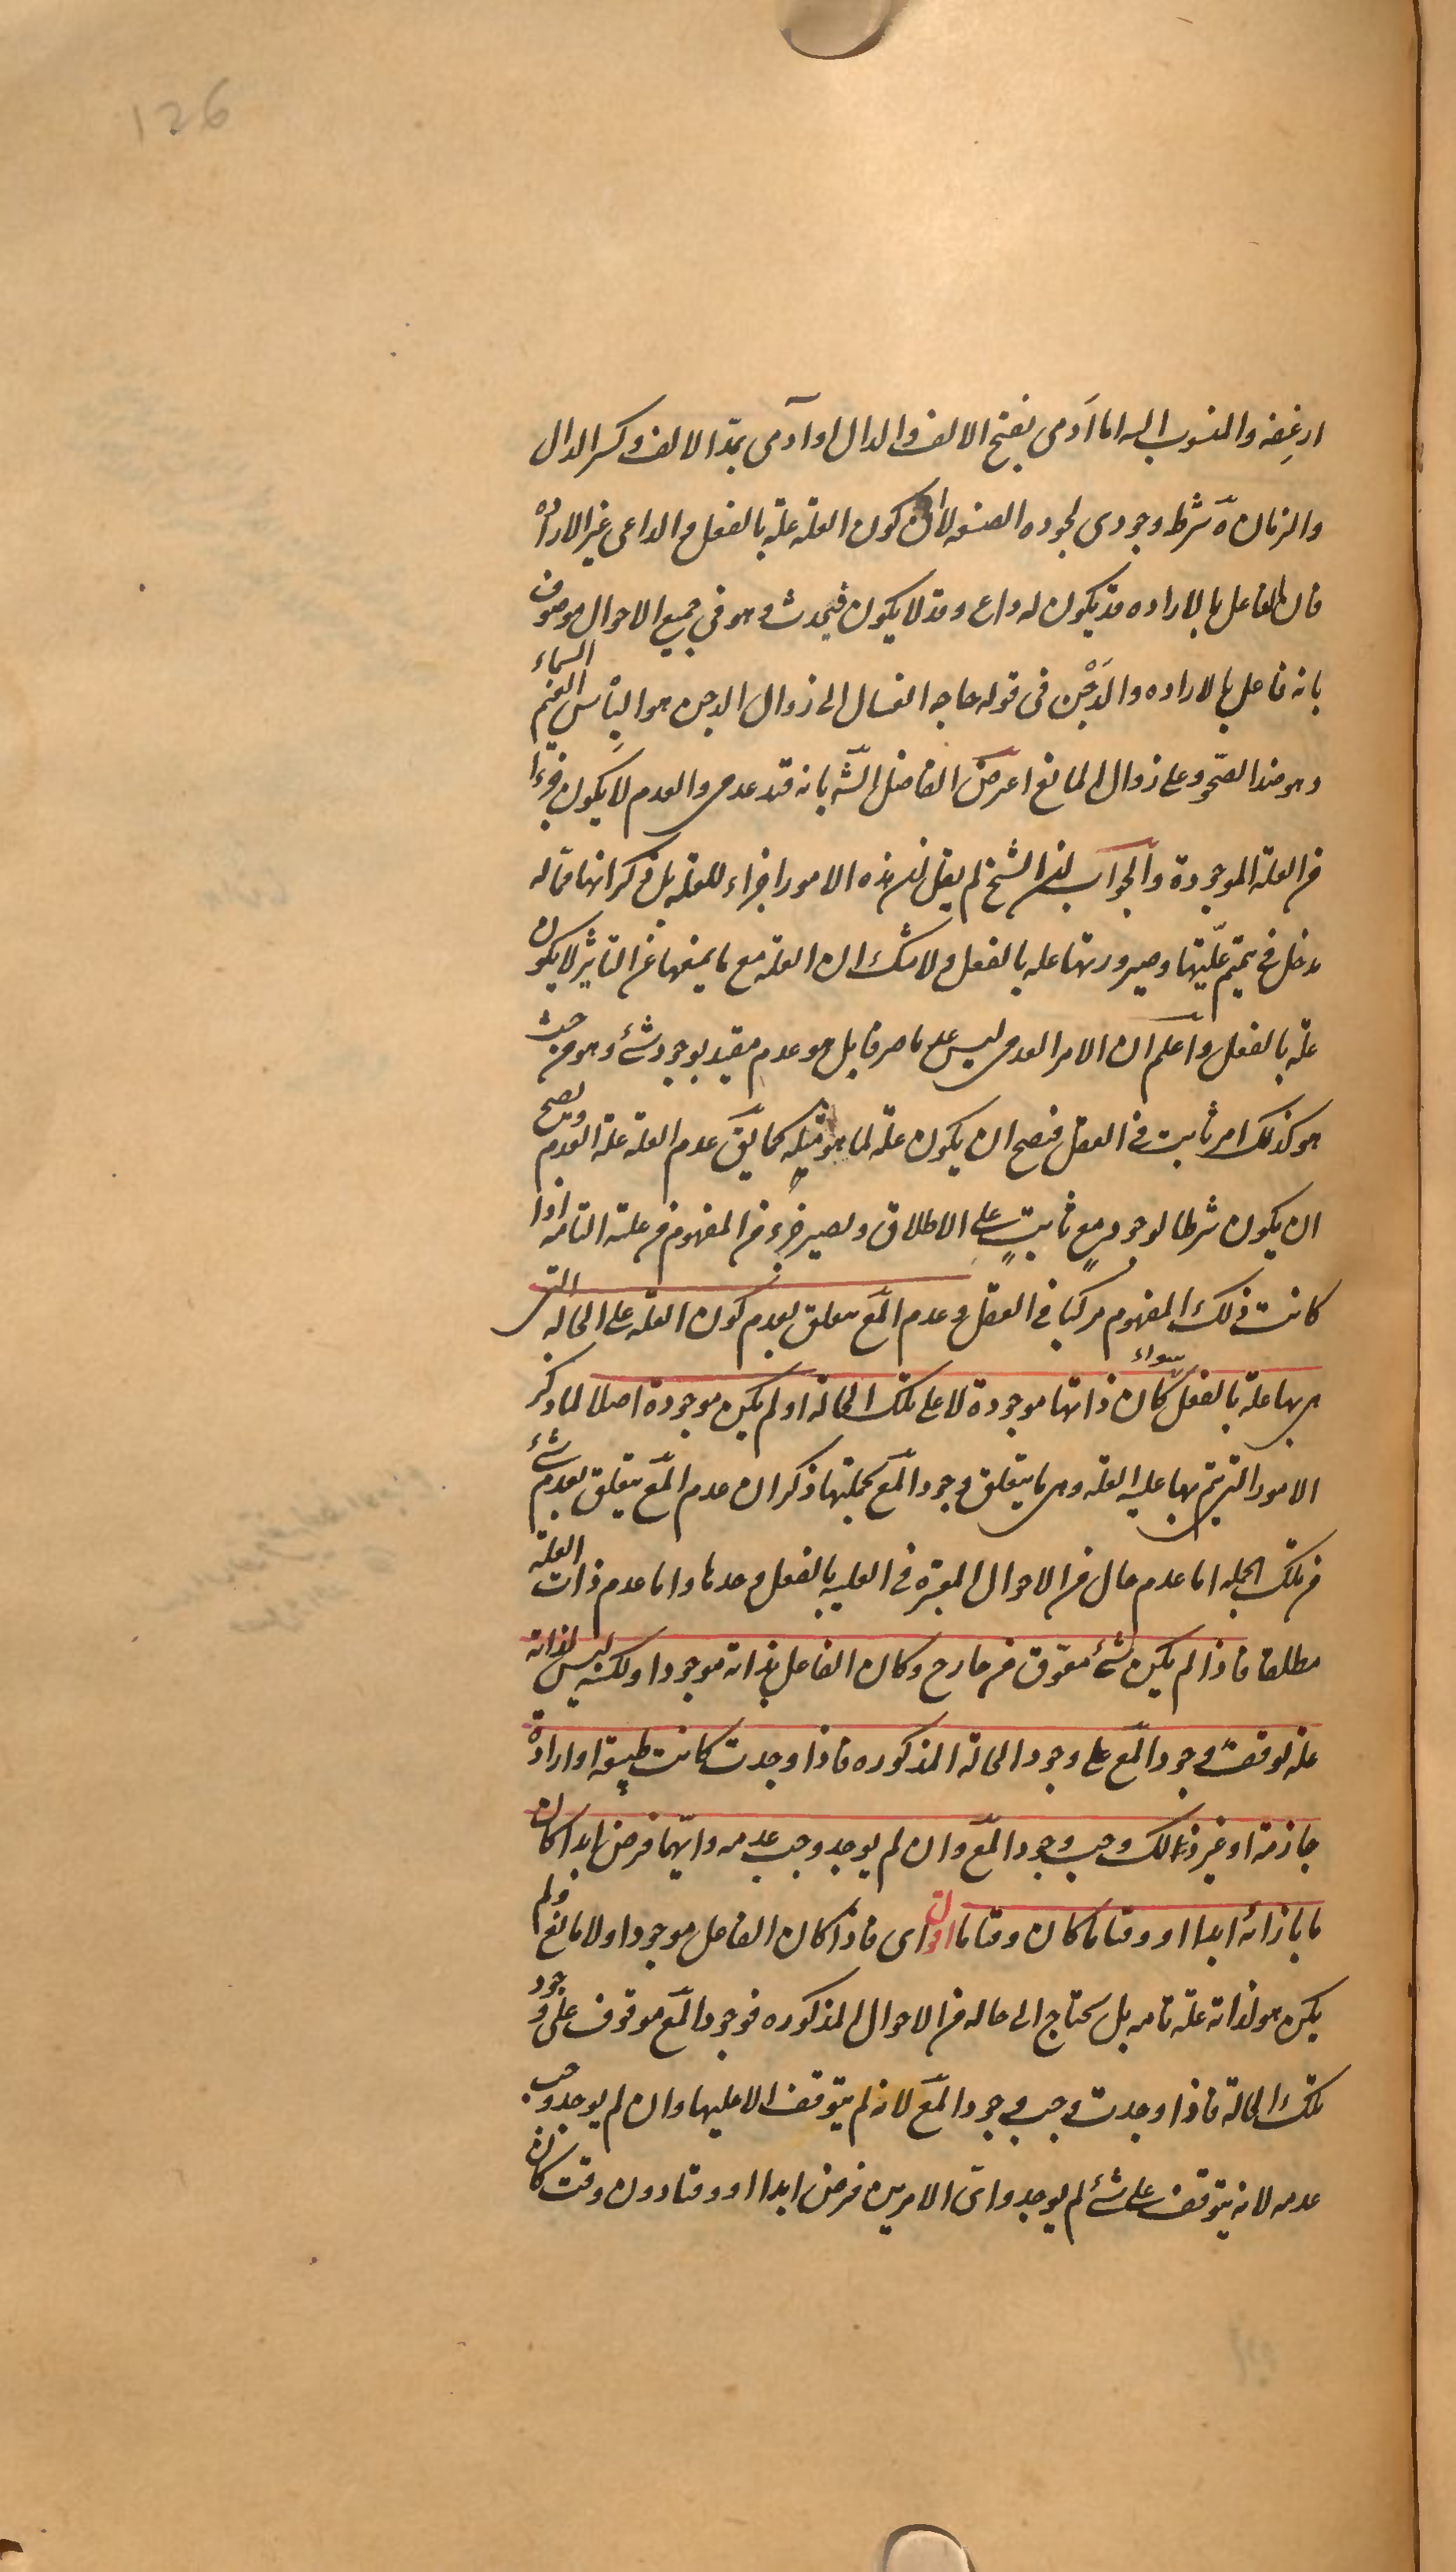 126
ارغفه والمنسوب اليه اما اَدَمى بفتح الالف والدال او آدمى بمدّ الالف وكسر الدال
والزمان ه شرط وجودى لجوده الصنعه لا كون العلة علة بالفعل والداعى غير الاراده
فان الفاعل بالاراده قد يكون له داع وقد لا يكون فيحدث وهو فى جميع الاحوال موصوف
بانه فاعل بالاراده والدَجْن فى قوله حاجه الغسال الى زوال الدجن هو الباس الغيم السماء
وهو ضد الصحو وعلى زوال المانع اعترض الفاضل الشه بانه قيد عدمى والعدم لا يكون جزءا
من العلة الموجودة والجواب ان الشيخ لم يقل ان هذه الامور اجزاء للعله بل ذكر انها مما له
مدخل فى تتميم علّيتها وصيرورتها عله بالفعل ولا شك ان العلة مع ما يمنعها عن التاثير لا يكون
علة بالفعل واعلم ان الامر العدمى ليس عدما صرفا بل هو عدم مقيد بوجود شئ وهو من حيث
هو كذلك امر ثابت فى العقل فيصح ان يكون علة لما هو مثله كما يق عدم العلة علة العدم ويصح
ان يكون شرطا لوجود مع ثابتٍ على الاطلاق ويصير جزء من المفهوم من علته التامه اذا
كانت ذلك المفهوم مركبا فى العقل وعدم المع متعلق بعدم كون العلة على الحالة التى
هى بها علة بالفعل سواء كان ذاتها موجودة لا على تلك الحالة او لم يكن موجودة اصلا لما ذكر
الامور التى يتم بها علية العلة وهى ما يتعلق وجود المع بجملتها ذكر ان عدم المع يتعلق بعدم شئ
من تلك الجمله اما عدم حال من الاحوال المعتبره فى العلية بالفعل وحدها واما عدم ذات العلة
مطلقا فاذا لم يكن شئ معوّق من خارج وكان الفاعل بذاته موجودا ولكنه ليس لذاته
علة توقف وجود المع على وجود الحالة المذكوره فاذا وجدت كانت طبيعة او ارادة
جازمة او غير ذلك وجب وجود المع وان لم يوجد وجب عدمه وايّهما فرض ابدا كان
ما بازائه ابدا او وقتا ما كان وقتا ما اقول اى فاذا كان الفاعل موجودا ولا مانع ولم
يكن هو لذاته علّة تامه بل يحتاج الى حاله من الاحوال المذكوره فوجود المع موقوف على وجود
تلك الحالة فاذا وجدت وجب وجود المع لانه لم يتوقف الا عليها وان لم يوجد وجب
عدمه لانه يتوقف على شئ لم يوجد واىّ الامرين فرض ابدا او وقتا دون وقت كان